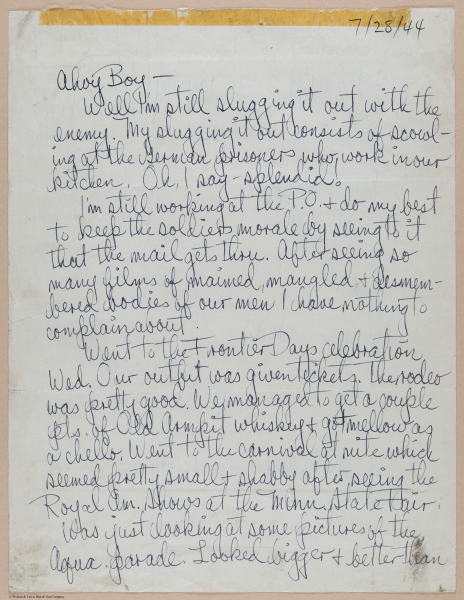 7/28/44
Ahoy Boy —
Well I'm still slugging it out with the
enemy. My slugging it out consists of scowl-
ing at the German prisoners who work in our
kitchen. Oh, I say - splendid!
I'm still working at the P.O. + do my best
to keep the soldiers morale by seeing to it
that the mail gets thru. After seeing so
many films of maimed, mangled + desmem-
bered bodies of our men I have nothing to
complain about.
Went to the Frontier Days celebration
Wed. Our outfit was given tickets. The rodeo
was pretty good. We managed to get a couple
pts. of Old Armpit whiskey + got mellow as
a chello. Went to the carnival at nite which
seemed pretty small + shabby after seeing the
Royal Am. Shows at the Minn. State Fair.
Was just looking at some pictures of the
Aqua. parade. Looked bigger + better than